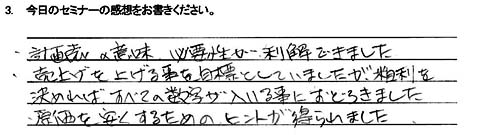 3. 今日のセミナーの感想をお書きください。
・計画表の意味 必要性が 利解できました
・売上げを上げる事を目標としていましたが粗利を
決めれば すべての数字が入いる事におどろきました
原価を安くするための ヒントが得られました